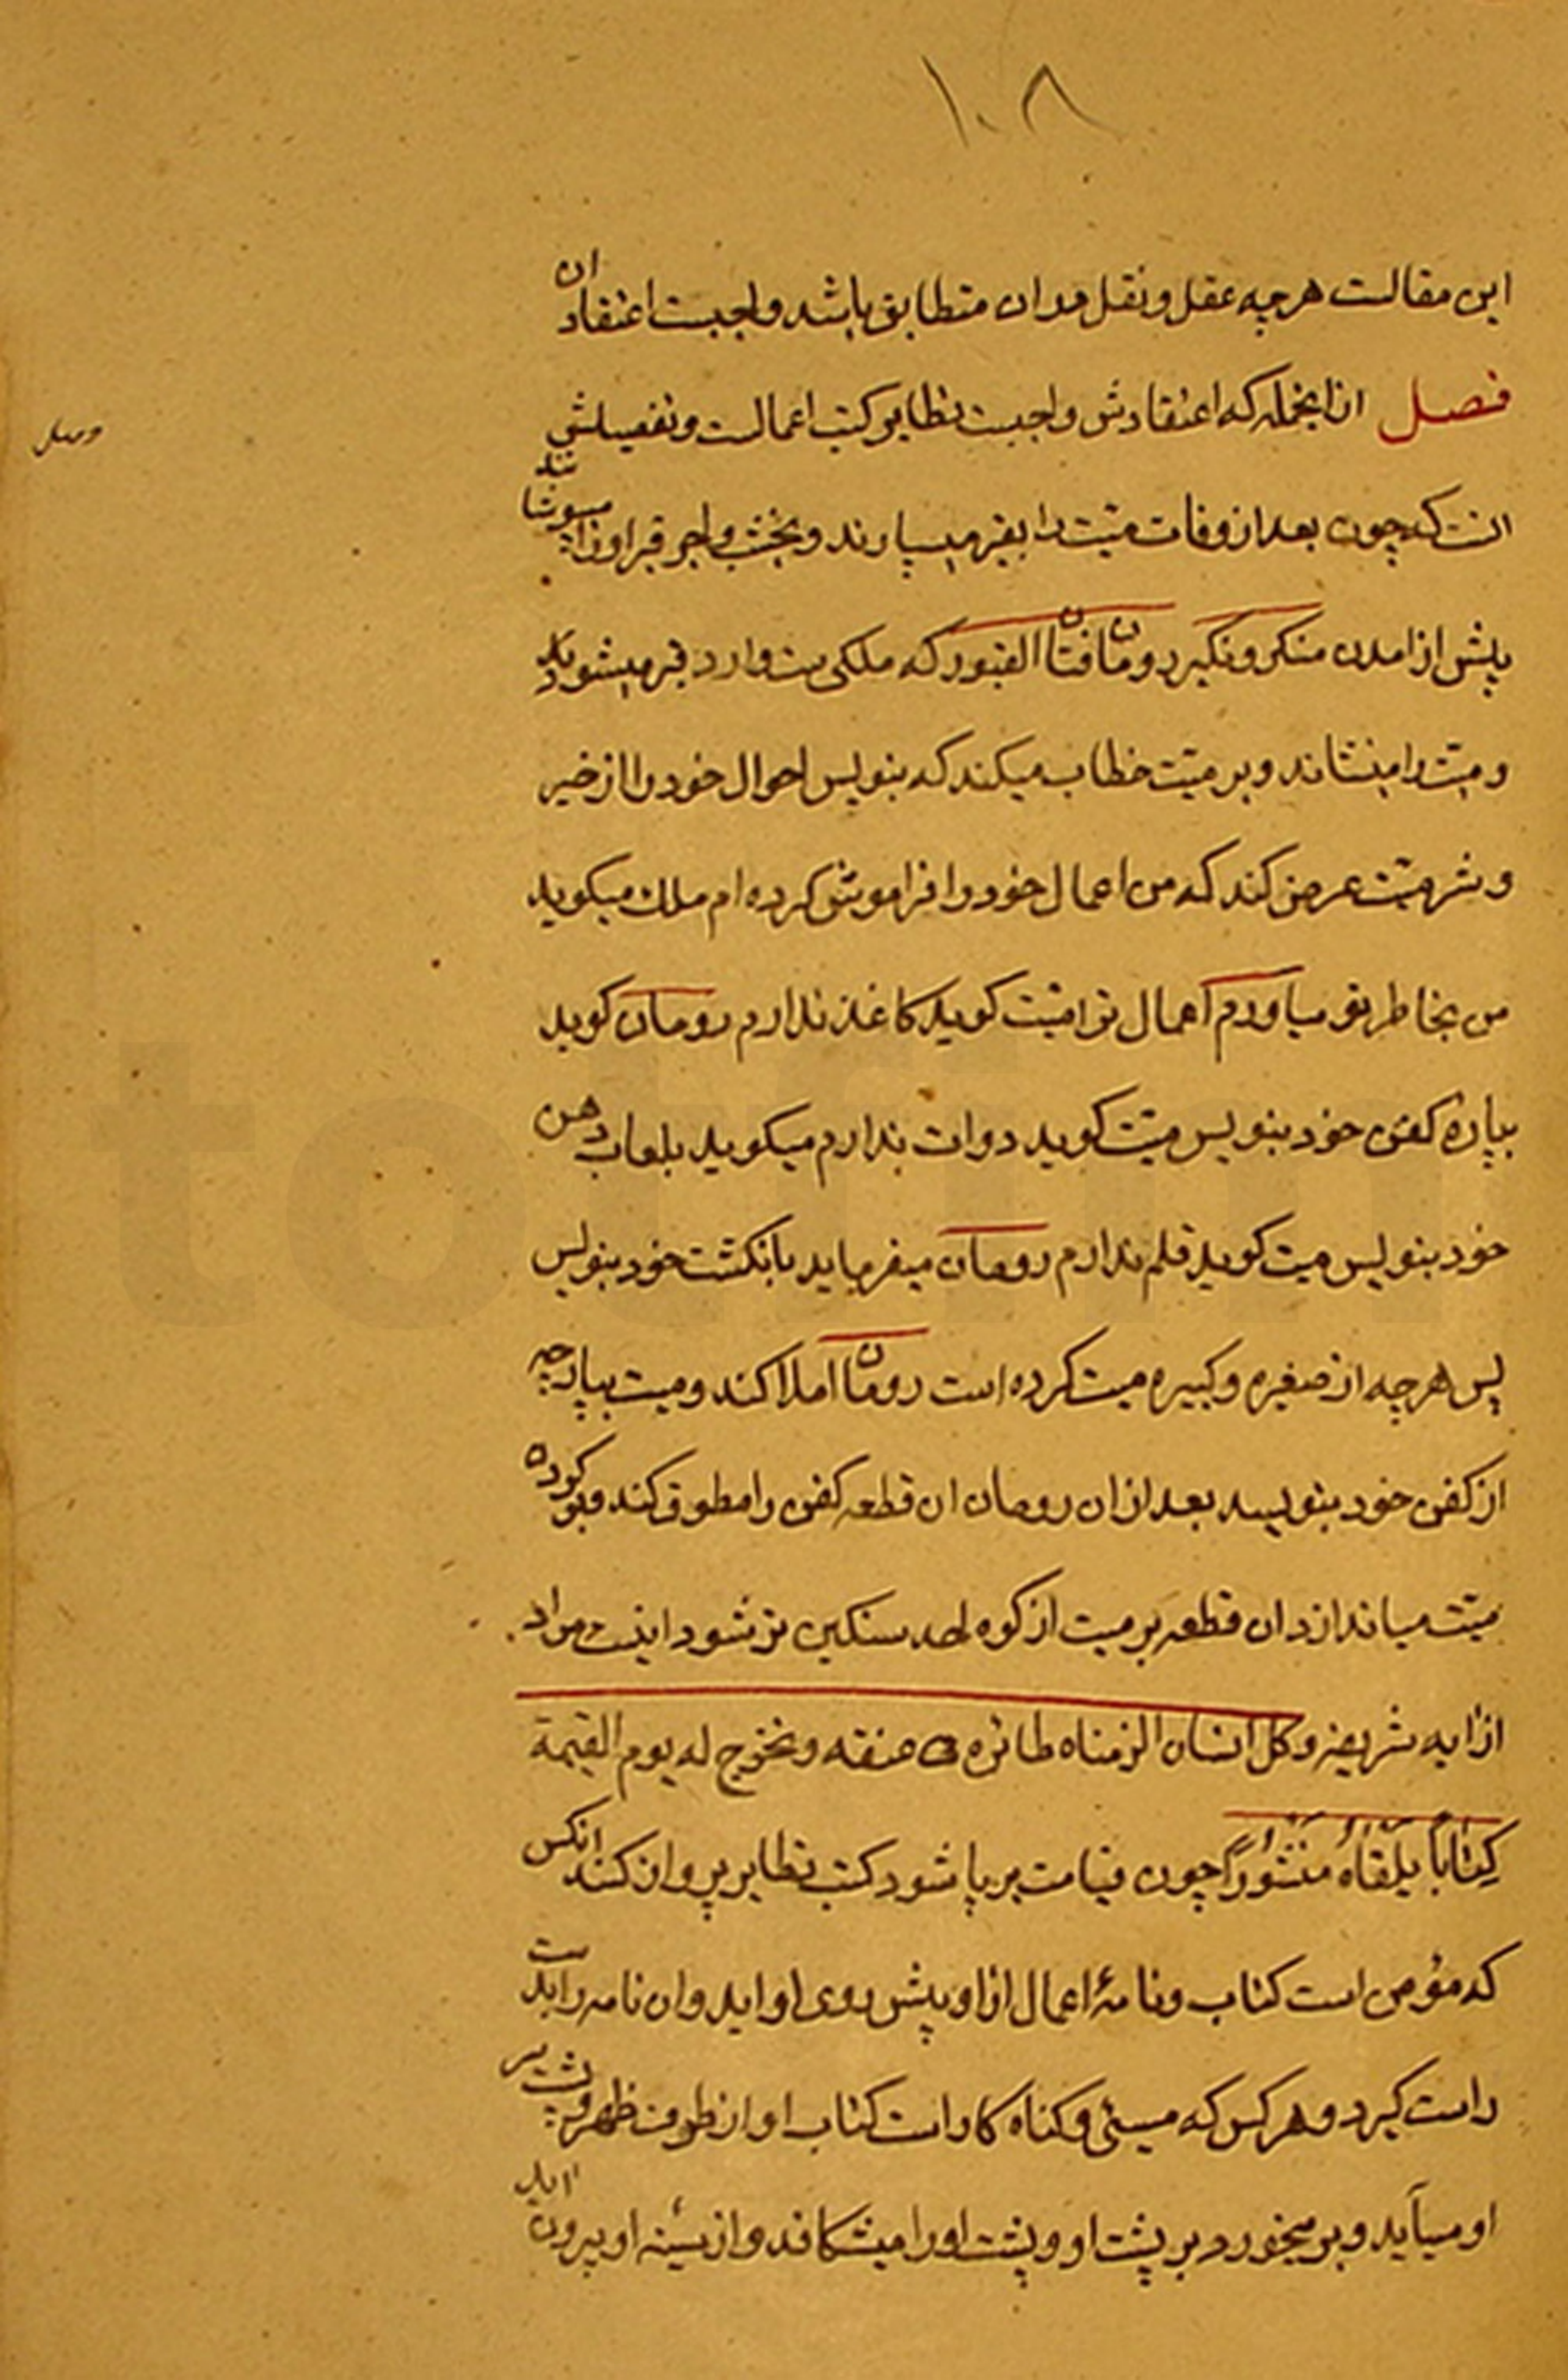 ۱۰۸
این مقالت هرچه عقل و نقل بدان متطابق باشد واجبست اعتقاد ان
فصل ازانجمله که اعتقادش واجبست تطایر کتب اعمالست و تفصیلش
وصل
انست که چون بعد از وفات میت را بقبر میسپارند و بخشت واجر قبر او را میپوشانند
پیش از امدن منکر و نکیر رومان فتان القبور که ملکی ست وارد قبر میشود
و میت را مینشاند و بر میت خطاب میکند که بنویس احوال خود را از خیر
و شر میت عرض کند که من اعمال خود را فراموش کرده ام ملک میکوید
من بخاطر تو میاورم اعمال ترا میت کوید کاغذ ندارم رومان کوید
بپارهٔ کفن خود بنویس میت کوید دوات ندارم میکوید بلعاب دهن
خود بنویس میت کوید قلم ندارم رومان میفرماید بانکشت خود بنویس
پس هرچه از صغیره و کبیره میت کرده است رومان املا کند و میت بپارچه
از کفن خود بنویسد بعد از ان رومان ان قطعه کفن را مطوق کند و بر کوردن
میت میاندازد ان قطعه بر میت از کوه احد سنکین تر شود اینست مراد
از ایه شریفه و کل انسان الزمناه طائره فی عنقه و نخرج له یوم القیمة
کِتاباً یلقاهُ منشوراً چون قیامت برپا شود کتب تطایر پروان کند انکس
که مؤمن است کتاب و نامهٔ اعمال از او پیش روی او اید وان نامه را بدست
راست کیرد و هر کس که مسیئ و کناه کار است کتاب او از طرف ظهر و پشت سر
او میآید و بر میخورد بر پشت او و پشت او را میشکافد و از سینه او بیرون اید